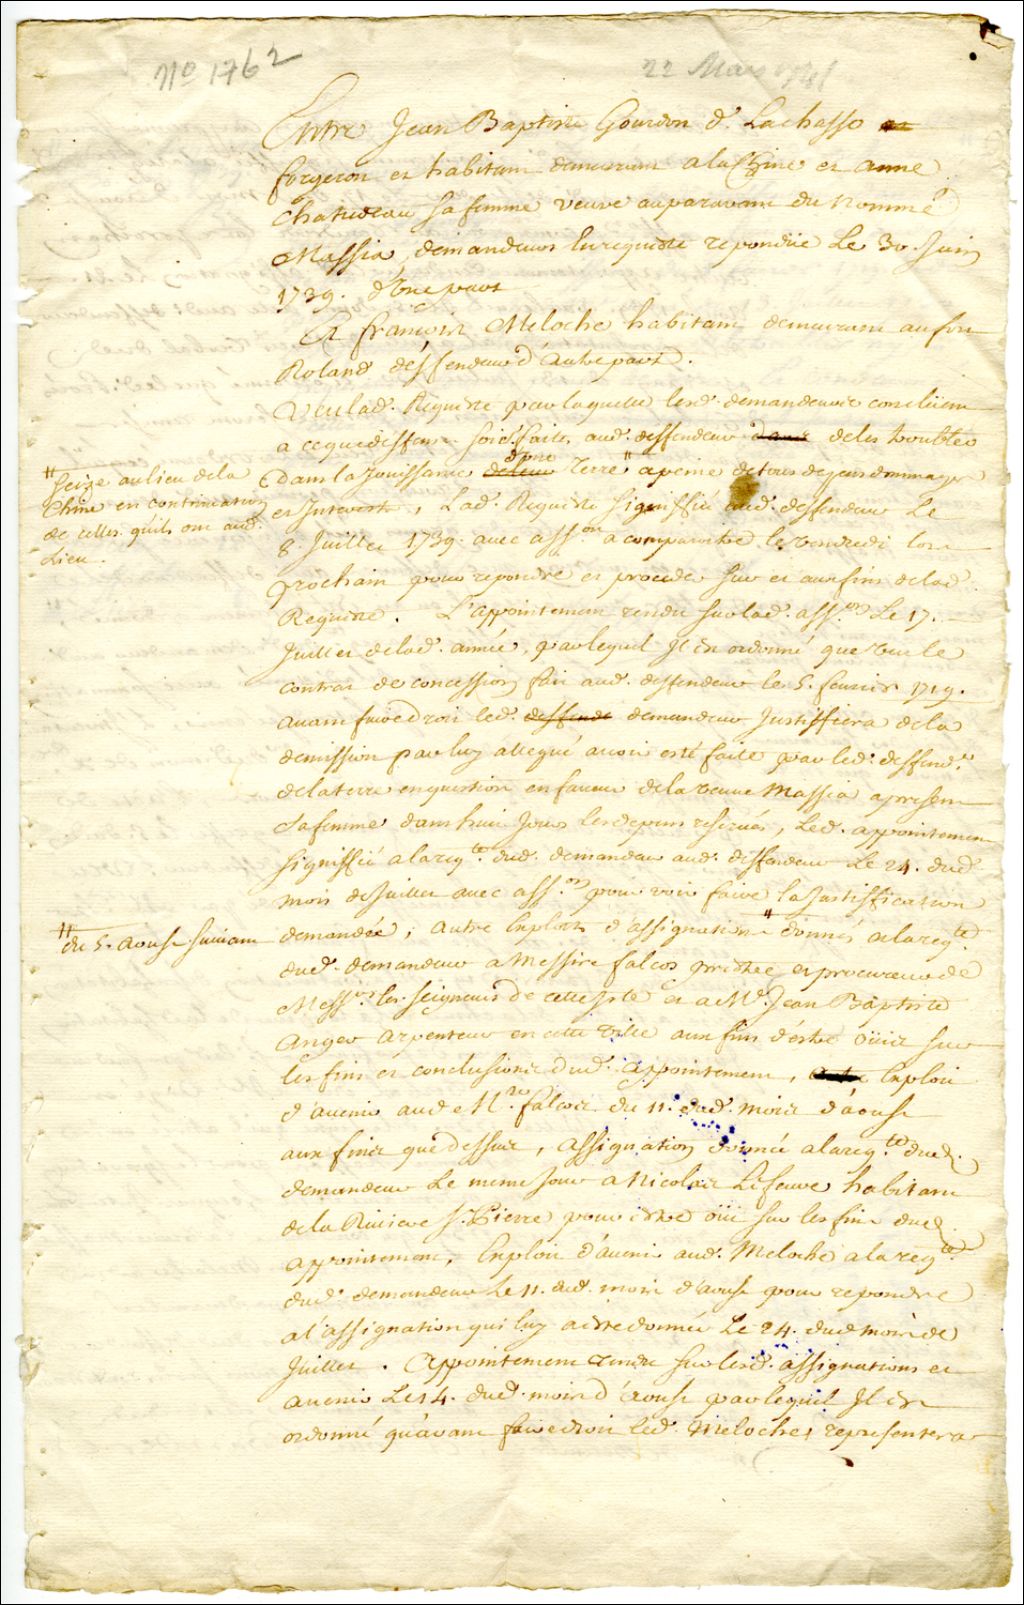 No 1762
22 Mars 1741
Entre Jean Baptiste Gourdon d. Lachasse
forgeron et habitant demeurant a la Chine et anne
Chatudeau sa femme veuve auparavant du nommé
Massia, demandeurs en requeste repondüe Le 30. Juin
1739. d'Une part
Et françois Meloche habitant demeurant au fort
Roland déffendeur d'autre part.
Veu lad. Requeste par laquelle lesd. demandeurs concluent
a ce que deffense soit faite aud. deffendeur dans de les troubler
dans la Jouissance de leur d'une Terre " a peine de tous depens dommages
et Interests, Lad. Requeste signiffiée aud. deffendeur Le
8. Juillet 1739. avec ass.on a comparoitre le vendredi lors
prochain pour repondre et proceder sur et aux fins de lad.
Requeste. L'appointement rendu sur lad. ass.on Le 17.
Juillet de lad. année, par lequel Il est ordonné que veu le
contrat de concession fait aud. deffendeur le 5. fevrier 1719.
avant faire droit led. deffend demandeur Justiffiera de la
demission par luy allegué avoir esté faite par led. deffend.r
de la terre en question en faveur de la veuve Massia apresent
sa femme dans huit Jours les depens reservés, Led. appointement
signiffié a la req.te dud. demandeur aud. deffendeur Le 24. dud.
mois de Juillet avec ass.on pour voir faire la Justiffication
demandée, autre Exploits d'assignation " donnés a la req.te
dud. demandeur a Messire falcos prestre et procureur de
Mess.rs les seigneurs de cette Isle et a M.e Jean Baptiste
Anger arpenteur en cette ville aux fins d'estre oüis sur
les fins et conclusions dud. appointement, autre Exploit
d'avenir aud. M.re falcos du 11. dud. mois d'aoust
aux fins que dessus, assignation donnée a la req.te dud.
demandeur Le meme Jour a Nicolas Lefebvre habitant
de la Riviere S. Pierre pour estre oüi sur les fins dud.
appointement, Exploit d'avenir aud. Meloche a la req.te
dud. demandeur Le 11. dud. mois d'aoust pour repondre
a l'assignation qui luy a este donnée Le 24. dud mois de
Juillet. Appointement rendu sur lesd. assignations et
avenir Le 14. dud. mois d'aoust par lequel Il est
ordonné qu'avant faire droit led. Meloche representera
" seize au lieu de la
Chine en continuation
de celles qu'ils ont aud.
Lieu.
" du 5. aoust suivant